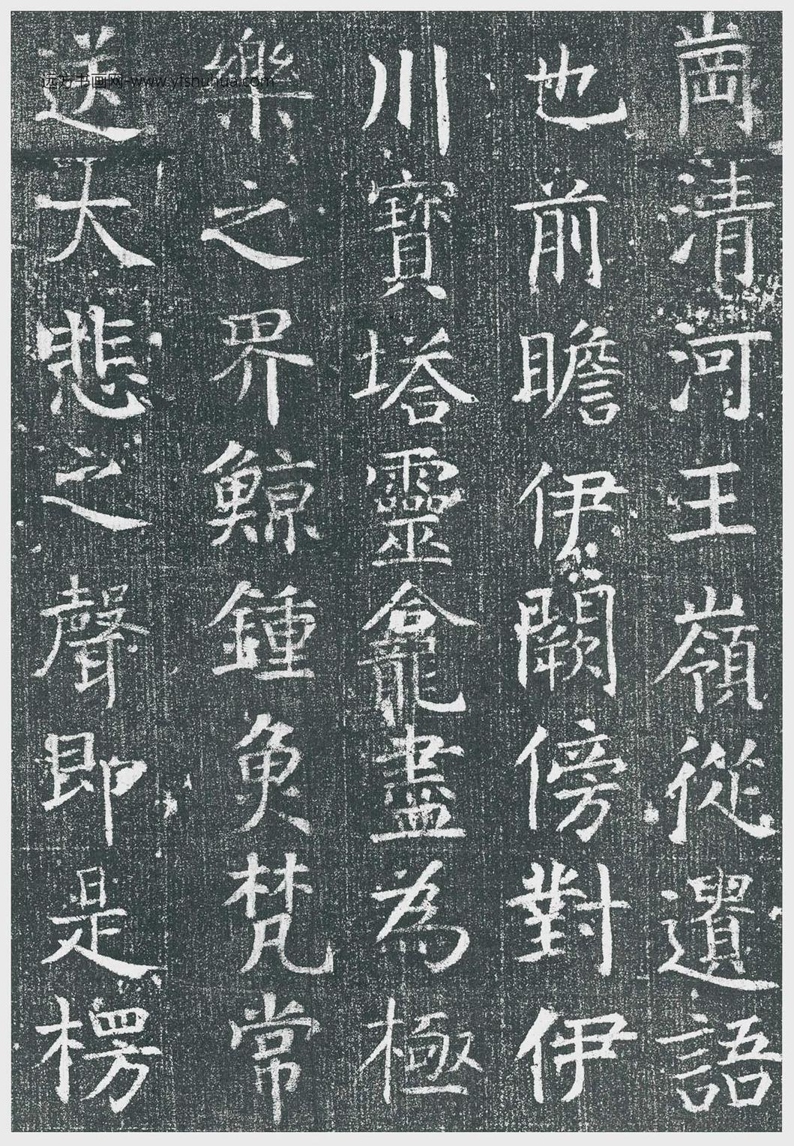 崗清河王嶺從遺語
也前瞻伊闕傍對伊
川寶塔靈龕盡為極
樂之界鯨鍾魚梵常
送大悲之聲即是楞
远方书画网-www.yfshuhua.com